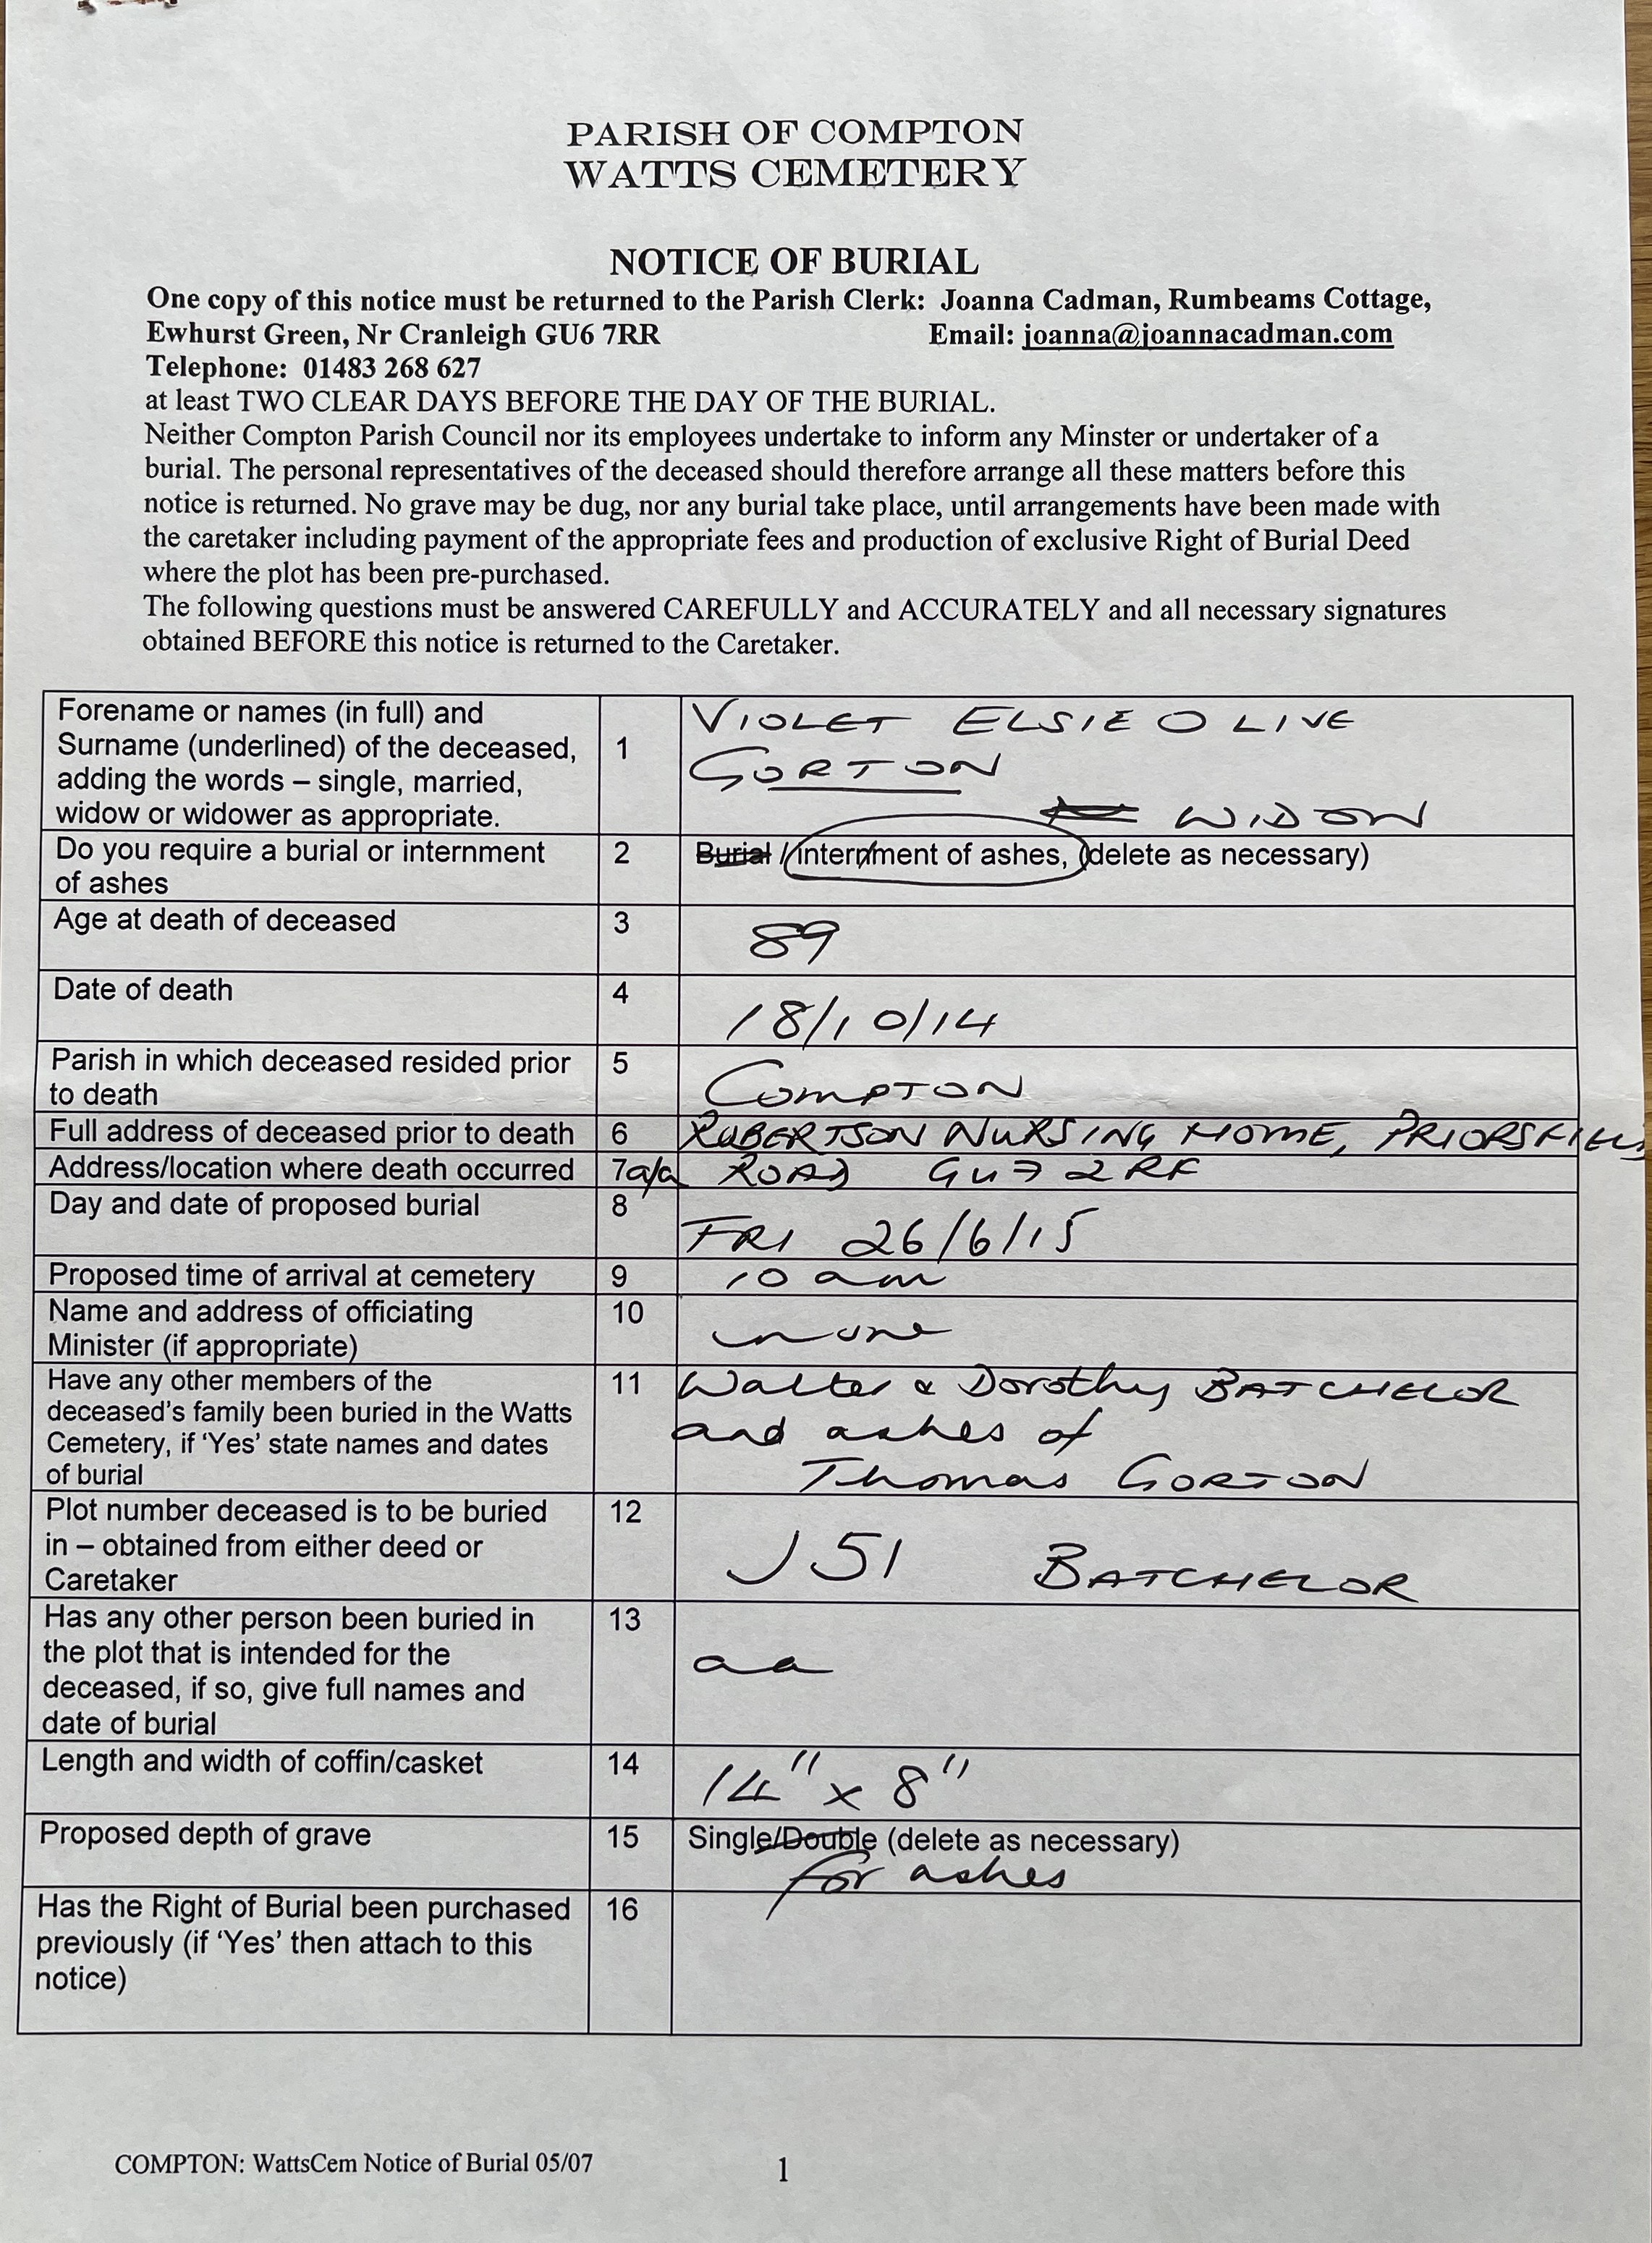 PARISH OF COMPTON
WATTS CEMETERY
NOTICE OF BURIAL
One copy of this notice must be returned to the Parish Clerk: Joanna Cadman, Rumbeams Cottage,
Ewhurst Green, Nr Cranleigh GU6 7RR Email: joanna@joannacadman.com
Telephone: 01483 268 627
at least TWO CLEAR DAYS BEFORE THE DAY OF THE BURIAL.
Neither Compton Parish Council nor its employees undertake to inform any Minster or undertaker of a
burial. The personal representatives of the deceased should therefore arrange all these matters before this
notice is returned. No grave may be dug, nor any burial take place, until arrangements have been made with
the caretaker including payment of the appropriate fees and production of exclusive Right of Burial Deed
where the plot has been pre-purchased.
The following questions must be answered CAREFULLY and ACCURATELY and all necessary signatures
obtained BEFORE this notice is returned to the Caretaker.
Forename or names (in full) and
Surname (underlined) of the deceased,
adding the words – single, married,
widow or widower as appropriate.
1
VIOLET ELSIE OLIVE
GORTON
WIDOW
Do you require a burial or internment
of ashes
2
Burial / internment of ashes, (delete as necessary)
Age at death of deceased
3
89
Date of death
4
18/10/14
Parish in which deceased resided prior
to death
5
COMPTON
Full address of deceased prior to death
6
ROBERTSON NURSING HOME, PRIORSFIELD
Address/location where death occurred
7 a/a
ROAD GU7 2RF
Day and date of proposed burial
8
FRI 26/6/15
Proposed time of arrival at cemetery
9
10 am
Name and address of officiating
Minister (if appropriate)
10
none
Have any other members of the
deceased's family been buried in the Watts
Cemetery, if 'Yes' state names and dates
of burial
11
Walter & Dorothy BATCHELOR
and ashes of
Thomas GORTON
Plot number deceased is to be buried
in – obtained from either deed or
Caretaker
12
J51 BATCHELOR
Has any other person been buried in
the plot that is intended for the
deceased, if so, give full names and
date of burial
13
aa
Length and width of coffin/casket
14
14" x 8"
Proposed depth of grave
15
Single/Double (delete as necessary)
for ashes
Has the Right of Burial been purchased
previously (if 'Yes' then attach to this
notice)
16
COMPTON: WattsCem Notice of Burial 05/07
1